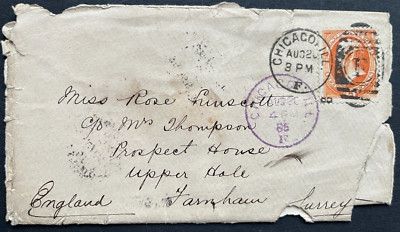 CHICAGO, ILL.
AUG 20
8 PM
F
CHICAGO, ILL.
AUG 20
85
F
Miss Rose
C/o Mrs Thompson
Prospect House
Upper Hale
England Farnham Surrey